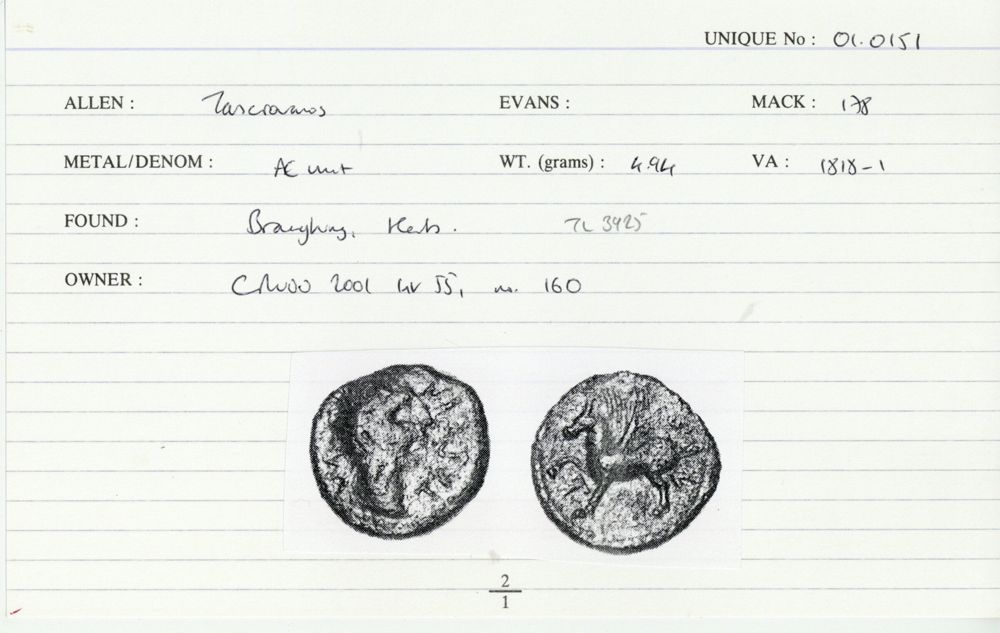 UNIQUE No : 01.0151
ALLEN : Tasciovanos EVANS : MACK : 178
METAL/DENOM : Æ unit WT. (grams) : 4.94 VA : 1818-1
FOUND : Braughing, Herts. TL 3925
OWNER : 2001 55, no. 160
2
1